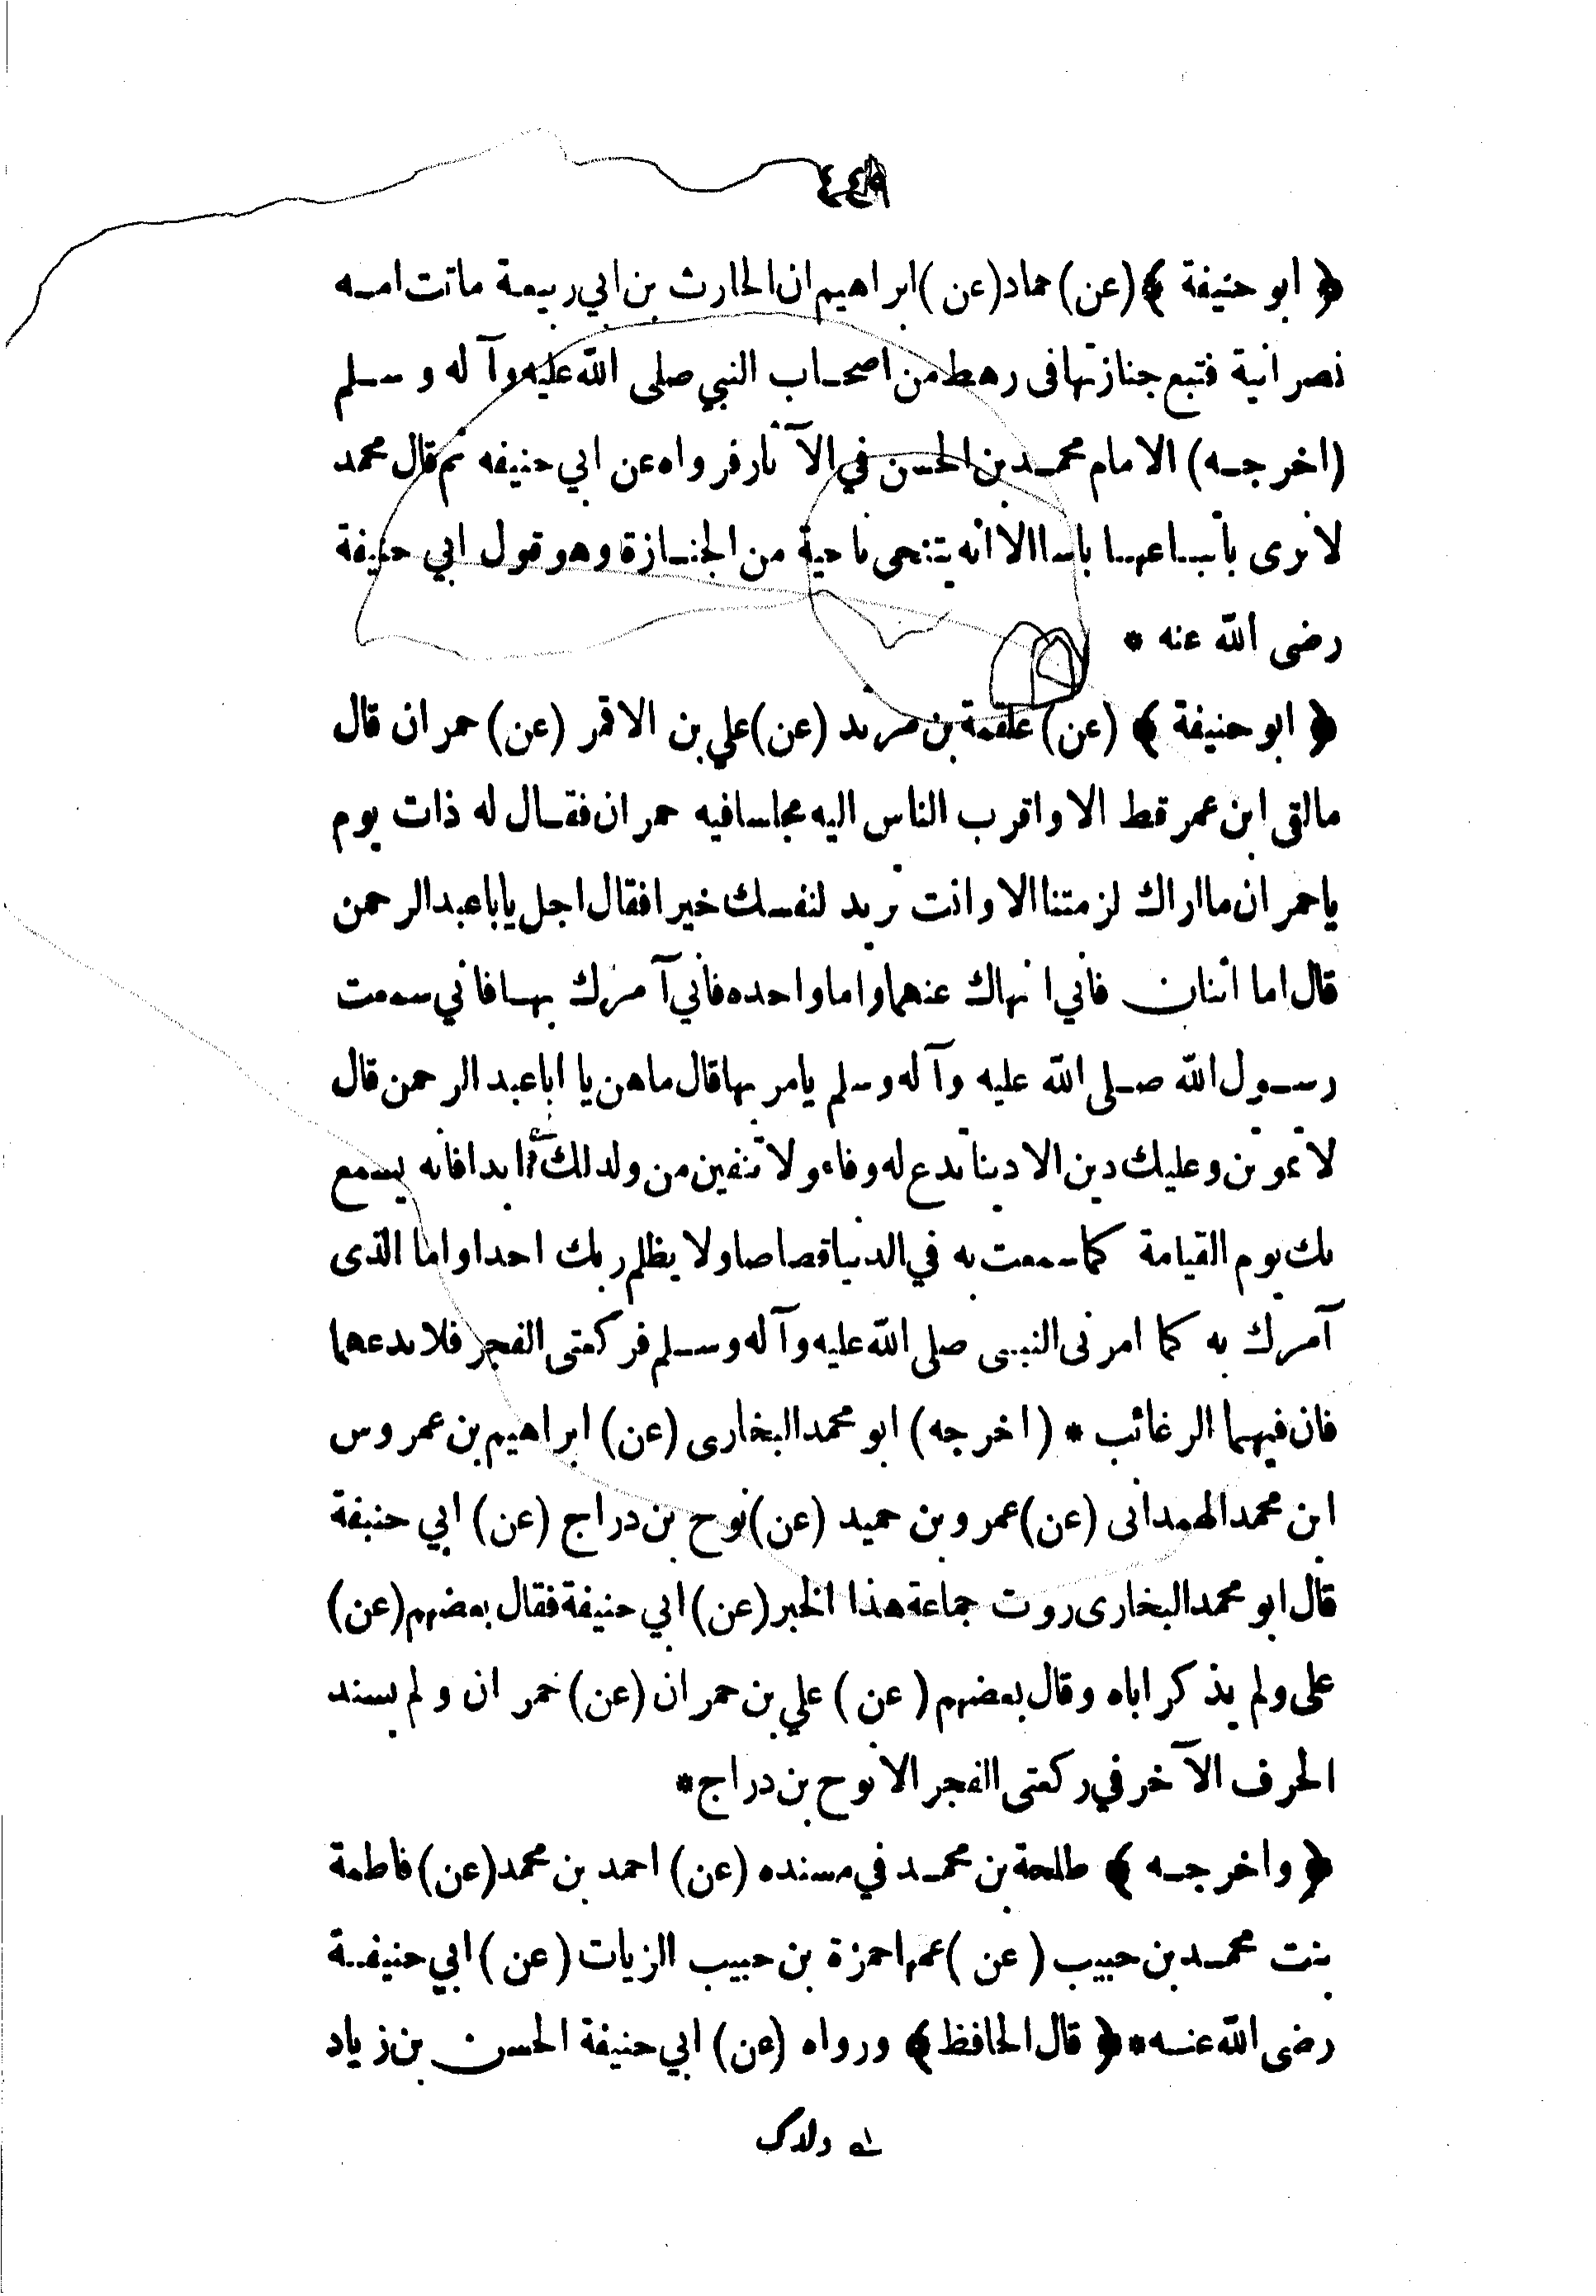 ﴿ ابو حنيفة ﴾ (عن) حماد (عن) ابراهيم ان الحارث بن ابي ربيعة ماتت امه
نصرانية فتبع جنازتها فى رهط من اصحاب النبي صلى الله عليه وآله وسلم
(اخرجه) الامام محمد بن الحسن في الآثار فرواه عن ابي حنيفه ثم قال محمد
لا نرى باتباعها باسا الا انه يتنحى ناحية من الجنازة وهو قول ابي حنيفة
رضى الله عنه *
﴿ ابو حنيفة ﴾ (عن) علقمة بن مرثد (عن) علي بن الاقمر (عن) حمران قال
مالقى ابن عمر قط الا واقرب الناس اليه مجلسا فيه حمران فقال له ذات يوم
يا حمران ما اراك لزمتنا الا وانت تريد لنفسك خيرا فقال اجل يا با عبد الرحمن
قال اما اثنان فاني انهاك عنهما واما واحده فاني آمرك بها فاني سمعت
رسول الله صلى الله عليه وآله وسلم يامر بها قال ما هن يا ابا عبد الرحمن قال
لا تموتن وعليك دين الا دينا تدع له وفاء ولا تنفين من ولد لك ابدا فانه يسمع
بك يوم القيامة كما سمعت به في الدنيا قصاصا ولا يظلم ربك احدا واما الذى
آمرك به كما امرنى النبى صلى الله عليه وآله وسلم فركعتى الفجر فلا تدعهما
فان فيهما الرغائب * (اخرجه) ابو محمد البخارى (عن) ابراهيم بن عمروس
ابن محمد الهمدانى (عن) عمرو بن حميد (عن) نوح بن دراج (عن) ابي حنيفة
قال ابو محمد البخارى روت جماعة هذا الخبر (عن) ابي حنيفة فقال بعضهم (عن)
على ولم يذكر اباه وقال بعضهم (عن) علي بن حمران (عن) حمران ولم يسند
الحرف الآخر في ركعتى الفجر الا نوح بن دراج *
﴿ واخرجه ﴾ طلحة بن محمد في مسنده (عن) احمد بن محمد (عن) فاطمة
بنت محمد بن حبيب (عن) عمها حمزة بن حبيب الزيات (عن) ابي حنيفة
رضى الله عنه * ﴿ قال الحافظ ﴾ ورواه (عن) ابي حنيفة الحسن بن زياد